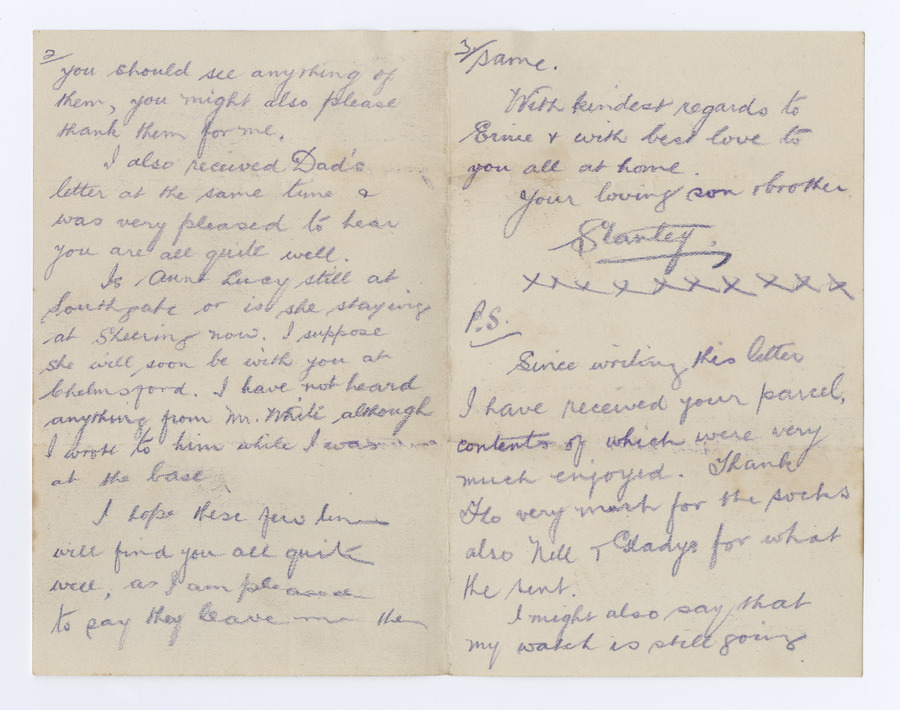 2/
you should see anything of
them, you might also please
thank them for me.
I also received Dad's
letter at the same time &
was very pleased to hear
you are all quite well.
Is Aunt Lucy still at
Southgate or is she staying
at Sheering now. I suppose
she will soon be with you at
Chelmsford. I have not heard
anything from Mr. White although
I wrote to him while I was
at the base
I hope these few lines
will find you all quite
well, as I am pleased
to say they leave me the
3/
same.
With kindest regards to
Ernie & with best love to
you all at home.
Your loving son & brother
Stanley.
x x x x x x x x x x
P.S.
Since writing this letter
I have received your parcel,
contents of which were very
much enjoyed. Thank
Flo very much for the socks
also Nell & Gladys for what
the sent.
I might also say that
my watch is still going